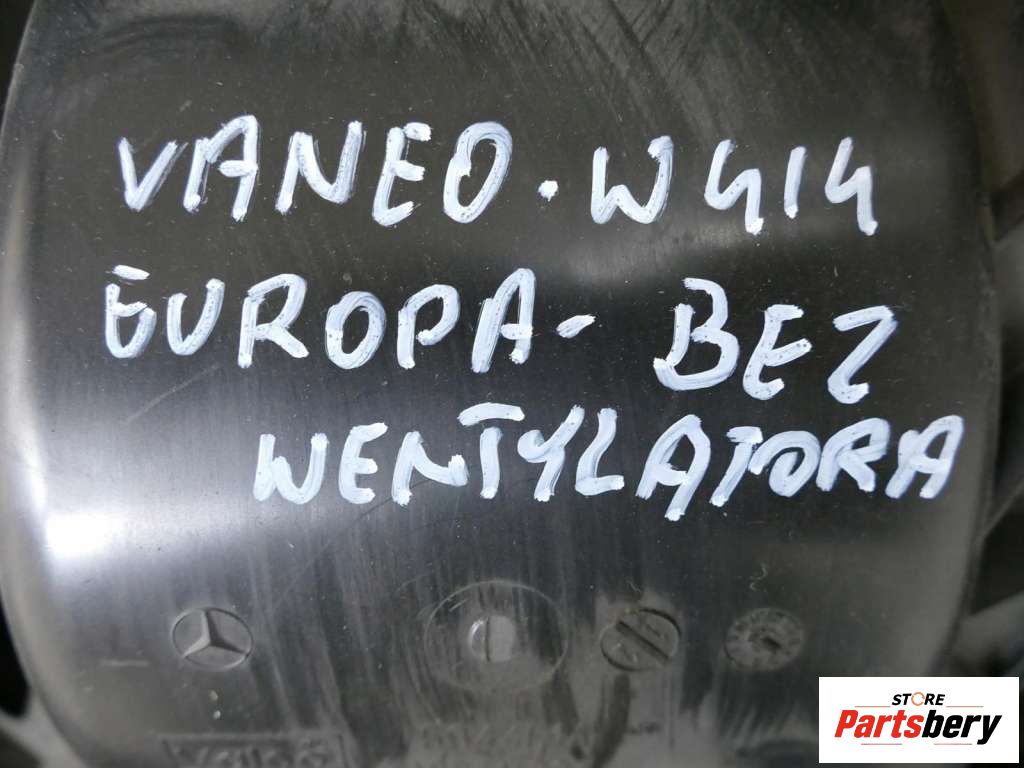 VANEO. W414
EUROPA- BEZ
WENTYLATORA
STORE
Partsbery